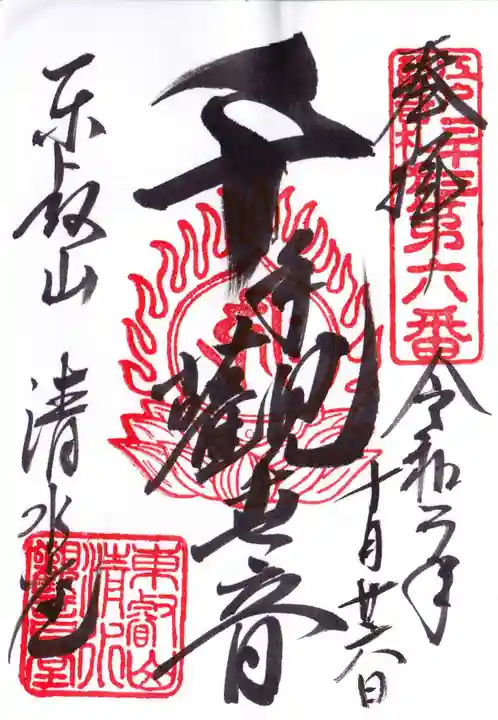 奉拝
第六番
令和二年
十月廿六日
千手觀世音
東叡山 清水堂
東叡山
清水
觀音堂